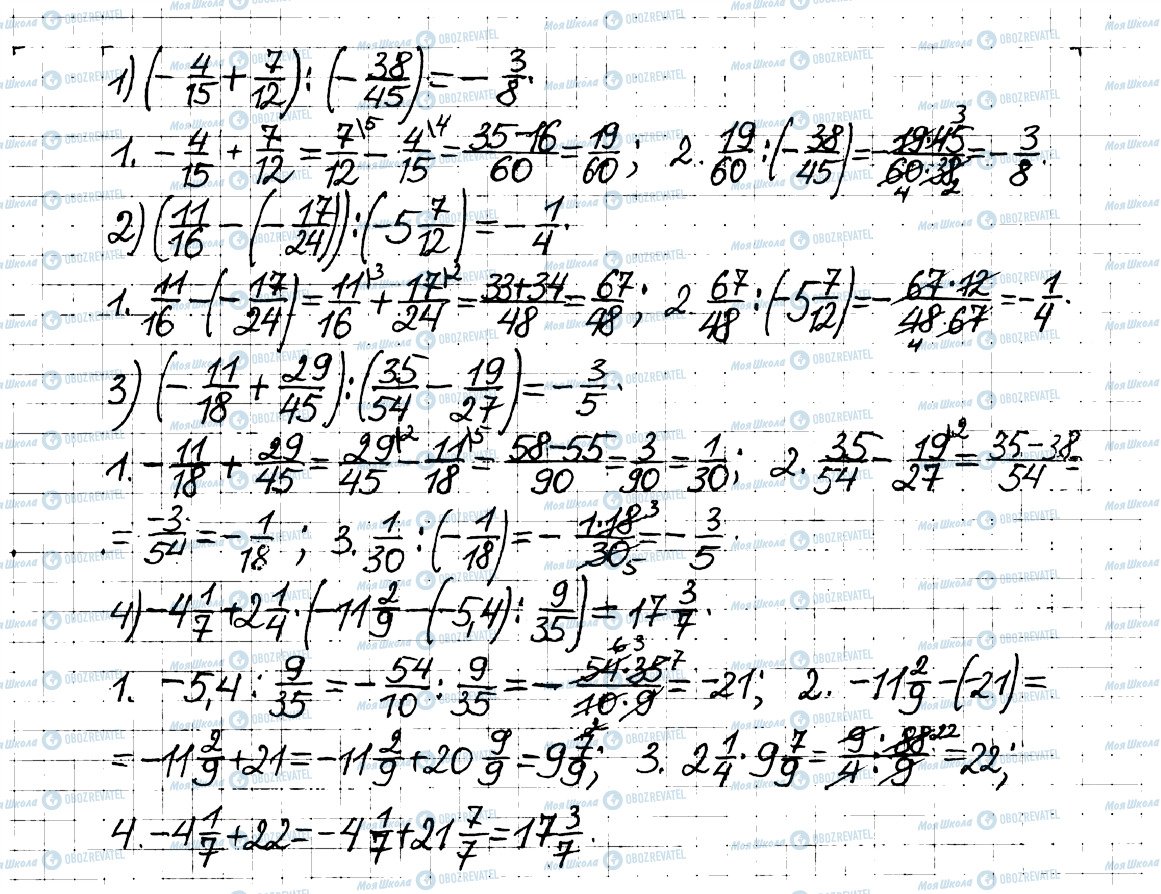 1) (-4/15 + 7/12) : (-38/45) = -3/8.
1. -4/15 + 7/12 = 7/12\5 - 4/15\4 = 35-16/60 = 19/60; 2. 19/60 : (-38/45) = -19·45 3/60·38 4 2 = -3/8.
2) (11/16 - (-17/24)) : (-5 7/12) = -1/4.
1. 11/16 - (-17/24) = 11/16\3 + 17/24\2 = 33+34/48 = 67/48; 2. 67/48 : (-5 7/12) = -67·12/48·67 4 = -1/4.
3) (-11/18 + 29/45) : (35/54 - 19/27) = -3/5.
1. -11/18 + 29/45 = 29/45\2 - 11/18\5 = 58-55/90 = 3/90 = 1/30; 2. 35/54 - 19/27\2 = 35-38/54 =
= -3/54 = -1/18; 3. 1/30 : (-1/18) = -1·18 3/30 5 = -3/5.
4) -4 1/7 + 2 1/4 · (-11 2/9 - (-5,4) : 9/35) = 17 3/7.
1. -5,4 : 9/35 = -54/10 : 9/35 = -54·35 6 3 7/10·9 2 = -21; 2. -11 2/9 - (-21) =
= -11 2/9 + 21 = -11 2/9 + 20 9/9 = 9 7/9; 3. 2 1/4 · 9 7/9 = 9/4 · 88 22/9 = 22;
4. -4 1/7 + 22 = -4 1/7 + 21 7/7 = 17 3/7.
Моя Школа OBOZREVATEL